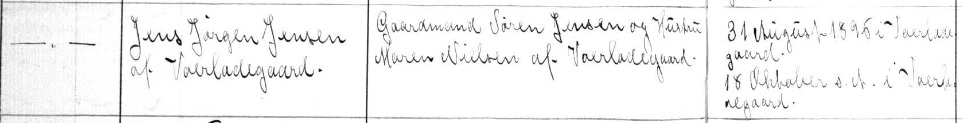 — . —
Jens Jörgen Jensen
af Voerladegaard.
Gaardmand Sören Jensen og Hustru
Maren Nielsen af Voerladegaard.
31 August 1896 i Voerlade-
gaard.
18 Oktober s. A. i Voerla-
degaard.